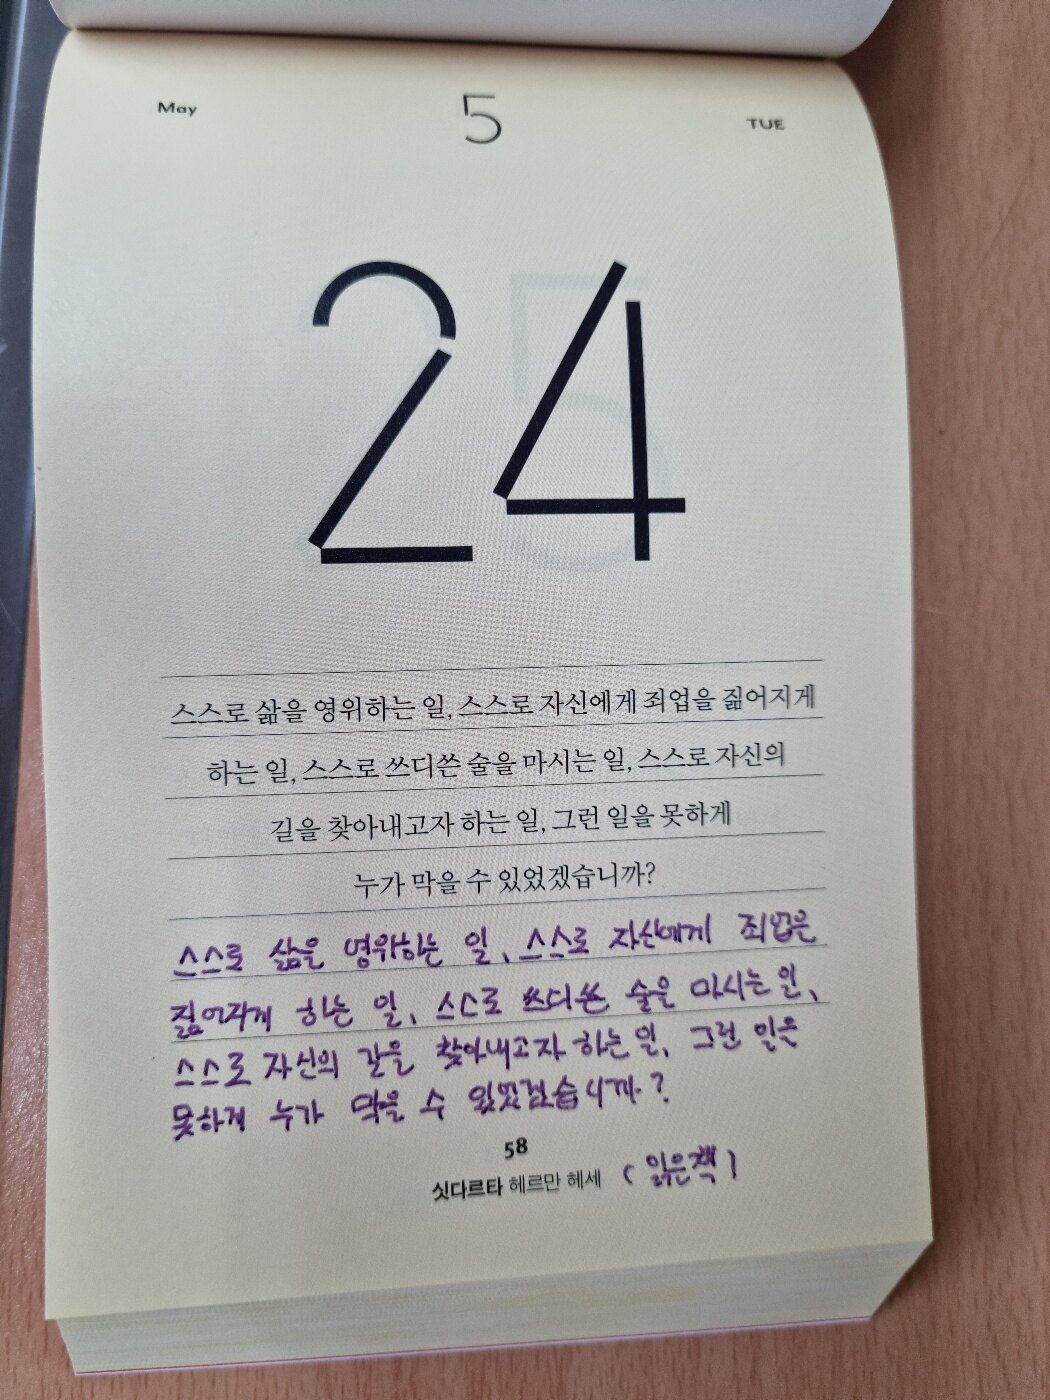 May 5 TUE
24
스스로 삶을 영위하는 일, 스스로 자신에게 죄업을 짊어지게
하는 일, 스스로 쓰디쓴 술을 마시는 일, 스스로 자신의
길을 찾아내고자 하는 일, 그런 일을 못하게
누가 막을 수 있었겠습니까?
스스로 삶을 영위하는 일, 스스로 자신에게 죄업을
짊어지게 하는 일, 스스로 쓰디쓴 술을 마시는 일,
스스로 자신의 길을 찾아내고자 하는 일, 그런 일을
못하게 누가 막을 수 있었겠습니까?
58
싯다르타 헤르만 헤세 (읽은책)